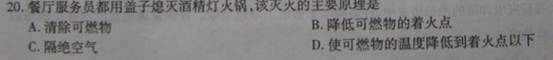 20. 餐厅服务员都用盖子熄灭酒精灯火锅,该灭火的主要原理是
A. 清除可燃物 B. 降低可燃物的着火点
C. 隔绝空气 D. 使可燃物的温度降低到着火点以下